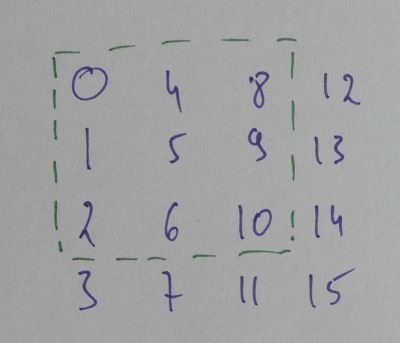 0 4 8 12
1 5 9 13
2 6 10 14
3 7 11 15